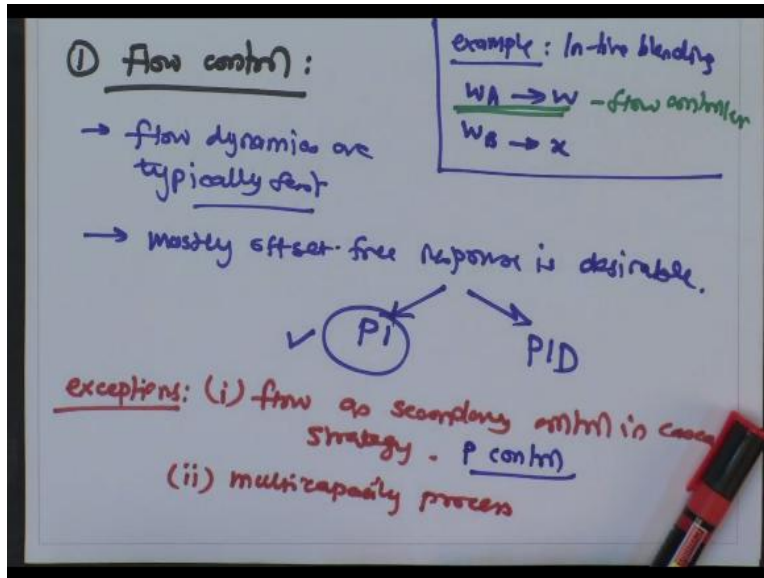 ① Flow control:
example: In-line blending
WA → W - flow controller
WB → x
→ flow dynamics are
typically fast
→ mostly offset-free response is desirable.
✓ PI PID
exceptions: (i) flow as secondary control in
strategy. P control
(ii) multicapacity process